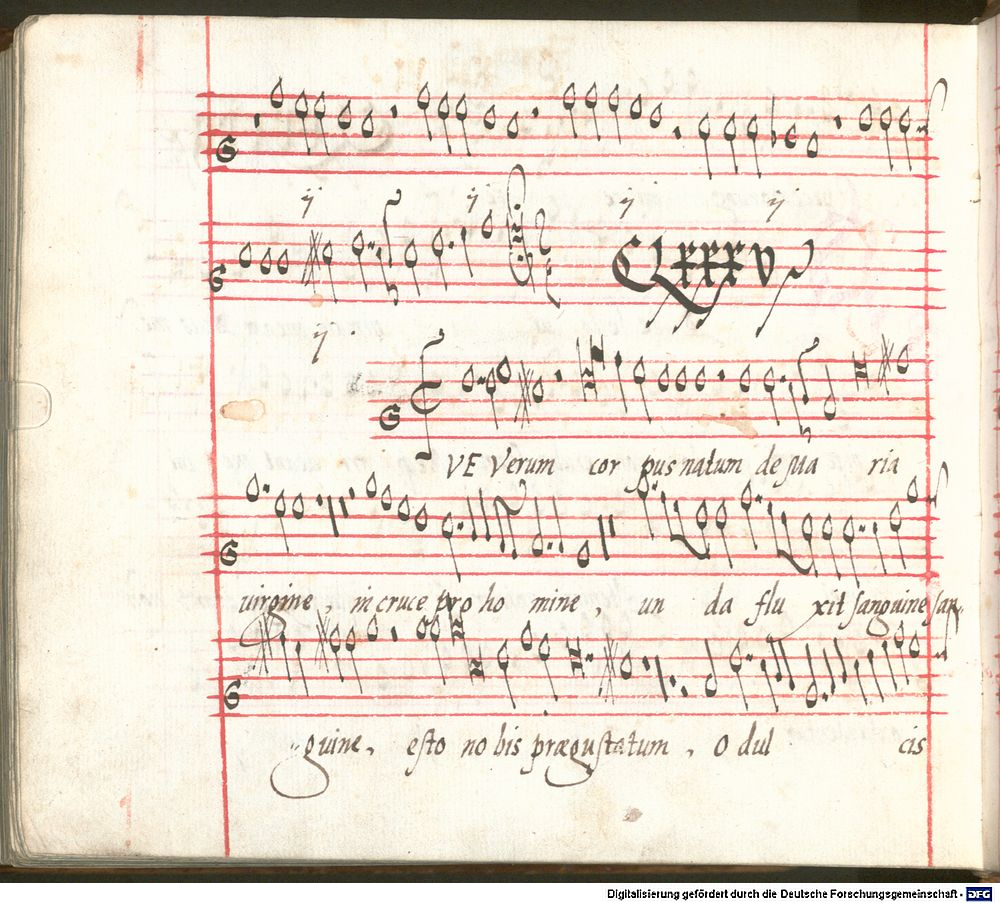 ij ij ij ij
CLXXXV
ij
VE Verum cor pus natum de ma ria
uirgine, in cruce pro ho mine, un da flu xit sanguine san,
guine, esto no bis prægustatum, O dul cis
Digitalisierung gefördert durch die Deutsche Forschungsgemeinschaft - DFG